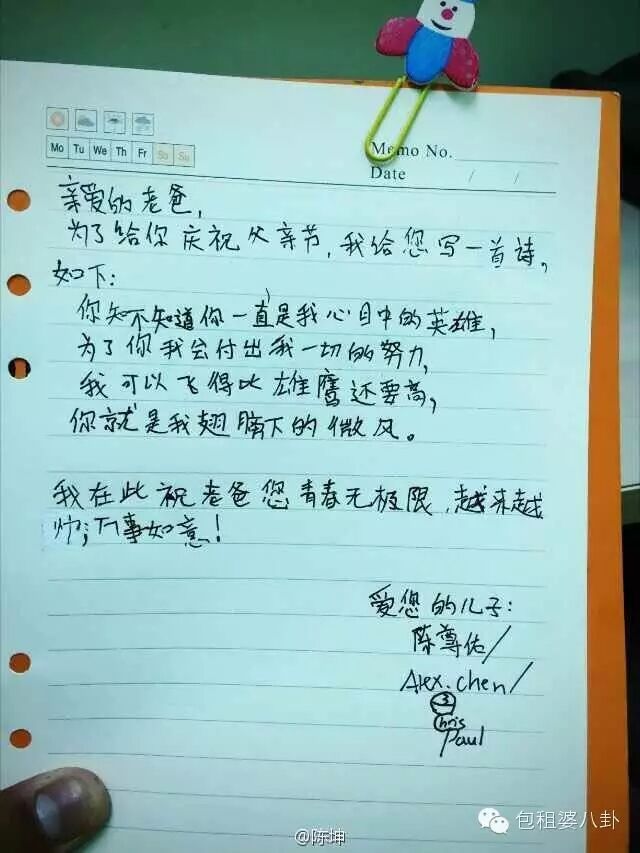 Mo Tu We Th Fr Sa Su
Memo No.
Date / /
亲爱的老爸,
为了给你庆祝父亲节,我给您写一首诗,
如下:
你知不知道你一直是我心目中的英雄,
为了你我会付出我一切的努力,
我可以飞得比雄鹰还要高,
你就是我翅膀下的微风。
我在此祝老爸您青春无极限,越来越
帅;万事如意!
爱您的儿子:
陈尊佑/
Alex.chen/
3
Chris
Paul
@陈坤
包租婆八卦